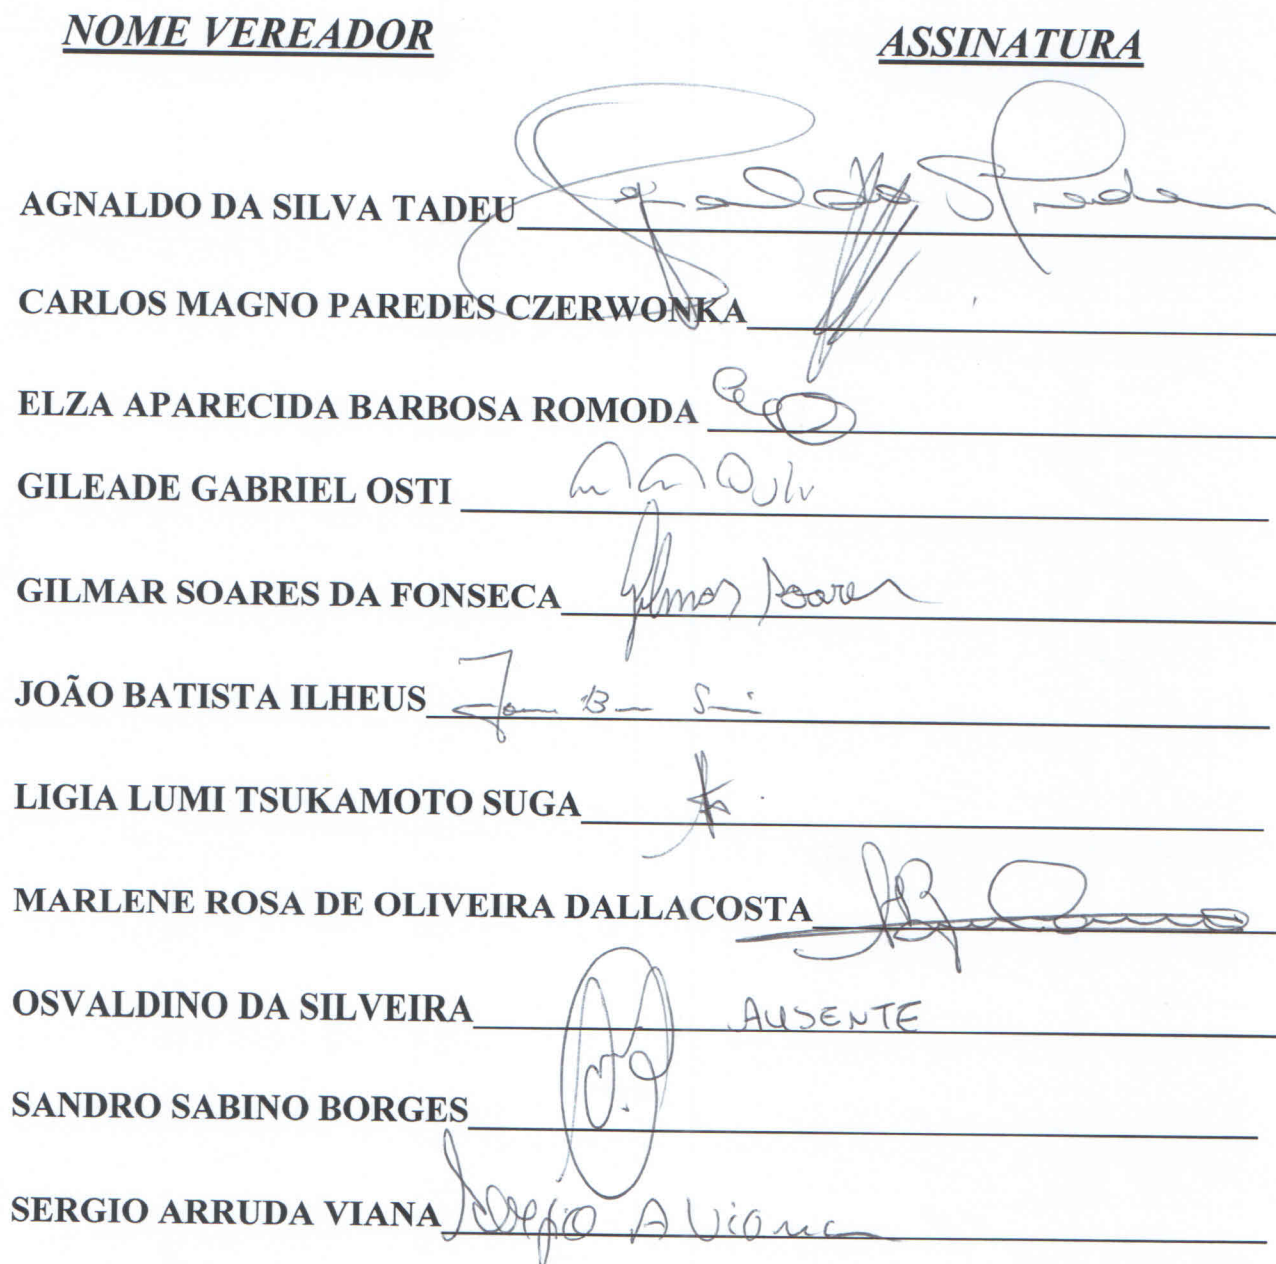 NOME VEREADOR ASSINATURA
AGNALDO DA SILVA TADEU
CARLOS MAGNO PAREDES CZERWONKA
ELZA APARECIDA BARBOSA ROMODA
GILEADE GABRIEL OSTI
GILMAR SOARES DA FONSECA Gilmar Soares
JOÃO BATISTA ILHEUS
LIGIA LUMI TSUKAMOTO SUGA
MARLENE ROSA DE OLIVEIRA DALLACOSTA
OSVALDINO DA SILVEIRA AUSENTE
SANDRO SABINO BORGES
SERGIO ARRUDA VIANA Sergio A Viana